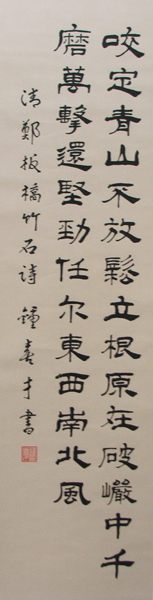 咬定青山不放鬆立根原在破巖中千
磨萬擊還堅勁任尔東西南北風
清鄭板橋竹石诗 鐘喜才書